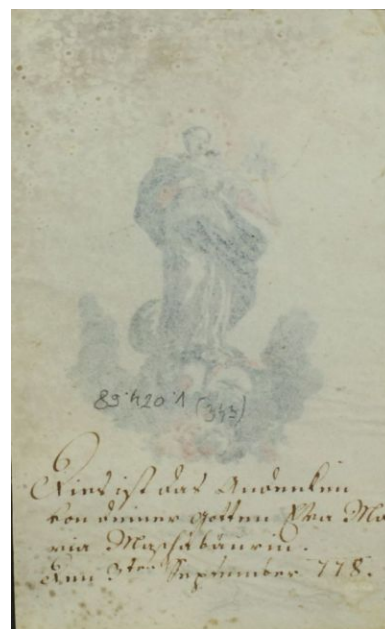 83·420·1 (343)
Dies ist das Andenken
von deiner Gotten Eva Ma
ria
Den 3ten September 778.